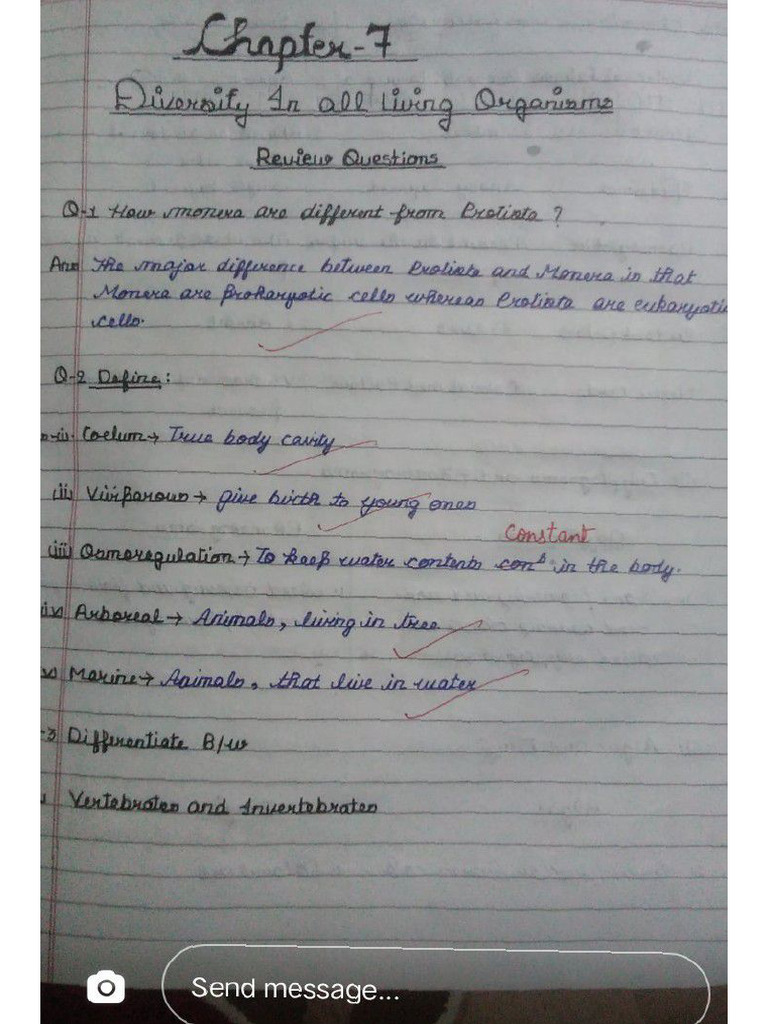 Chapter-7
Diversity In all living Organisms
Review Questions
Q-1 How monera are different from Protista ?
Ans The major difference between Protista and Monera is that
Monera are Prokaryotic cells whereas Protista are eukaryotic
cells.
Q-2 Define:
Coelum → True body cavity
(ii) Viviparous → give birth to young ones
constant
(iii) Osmoregulation → To keep water contents in the body.
(iv) Arboreal → Animals, living in tree
Marine → Animals, that live in water
-3 Differentiate B/w
Vertebrates and Invertebrates
Send message...